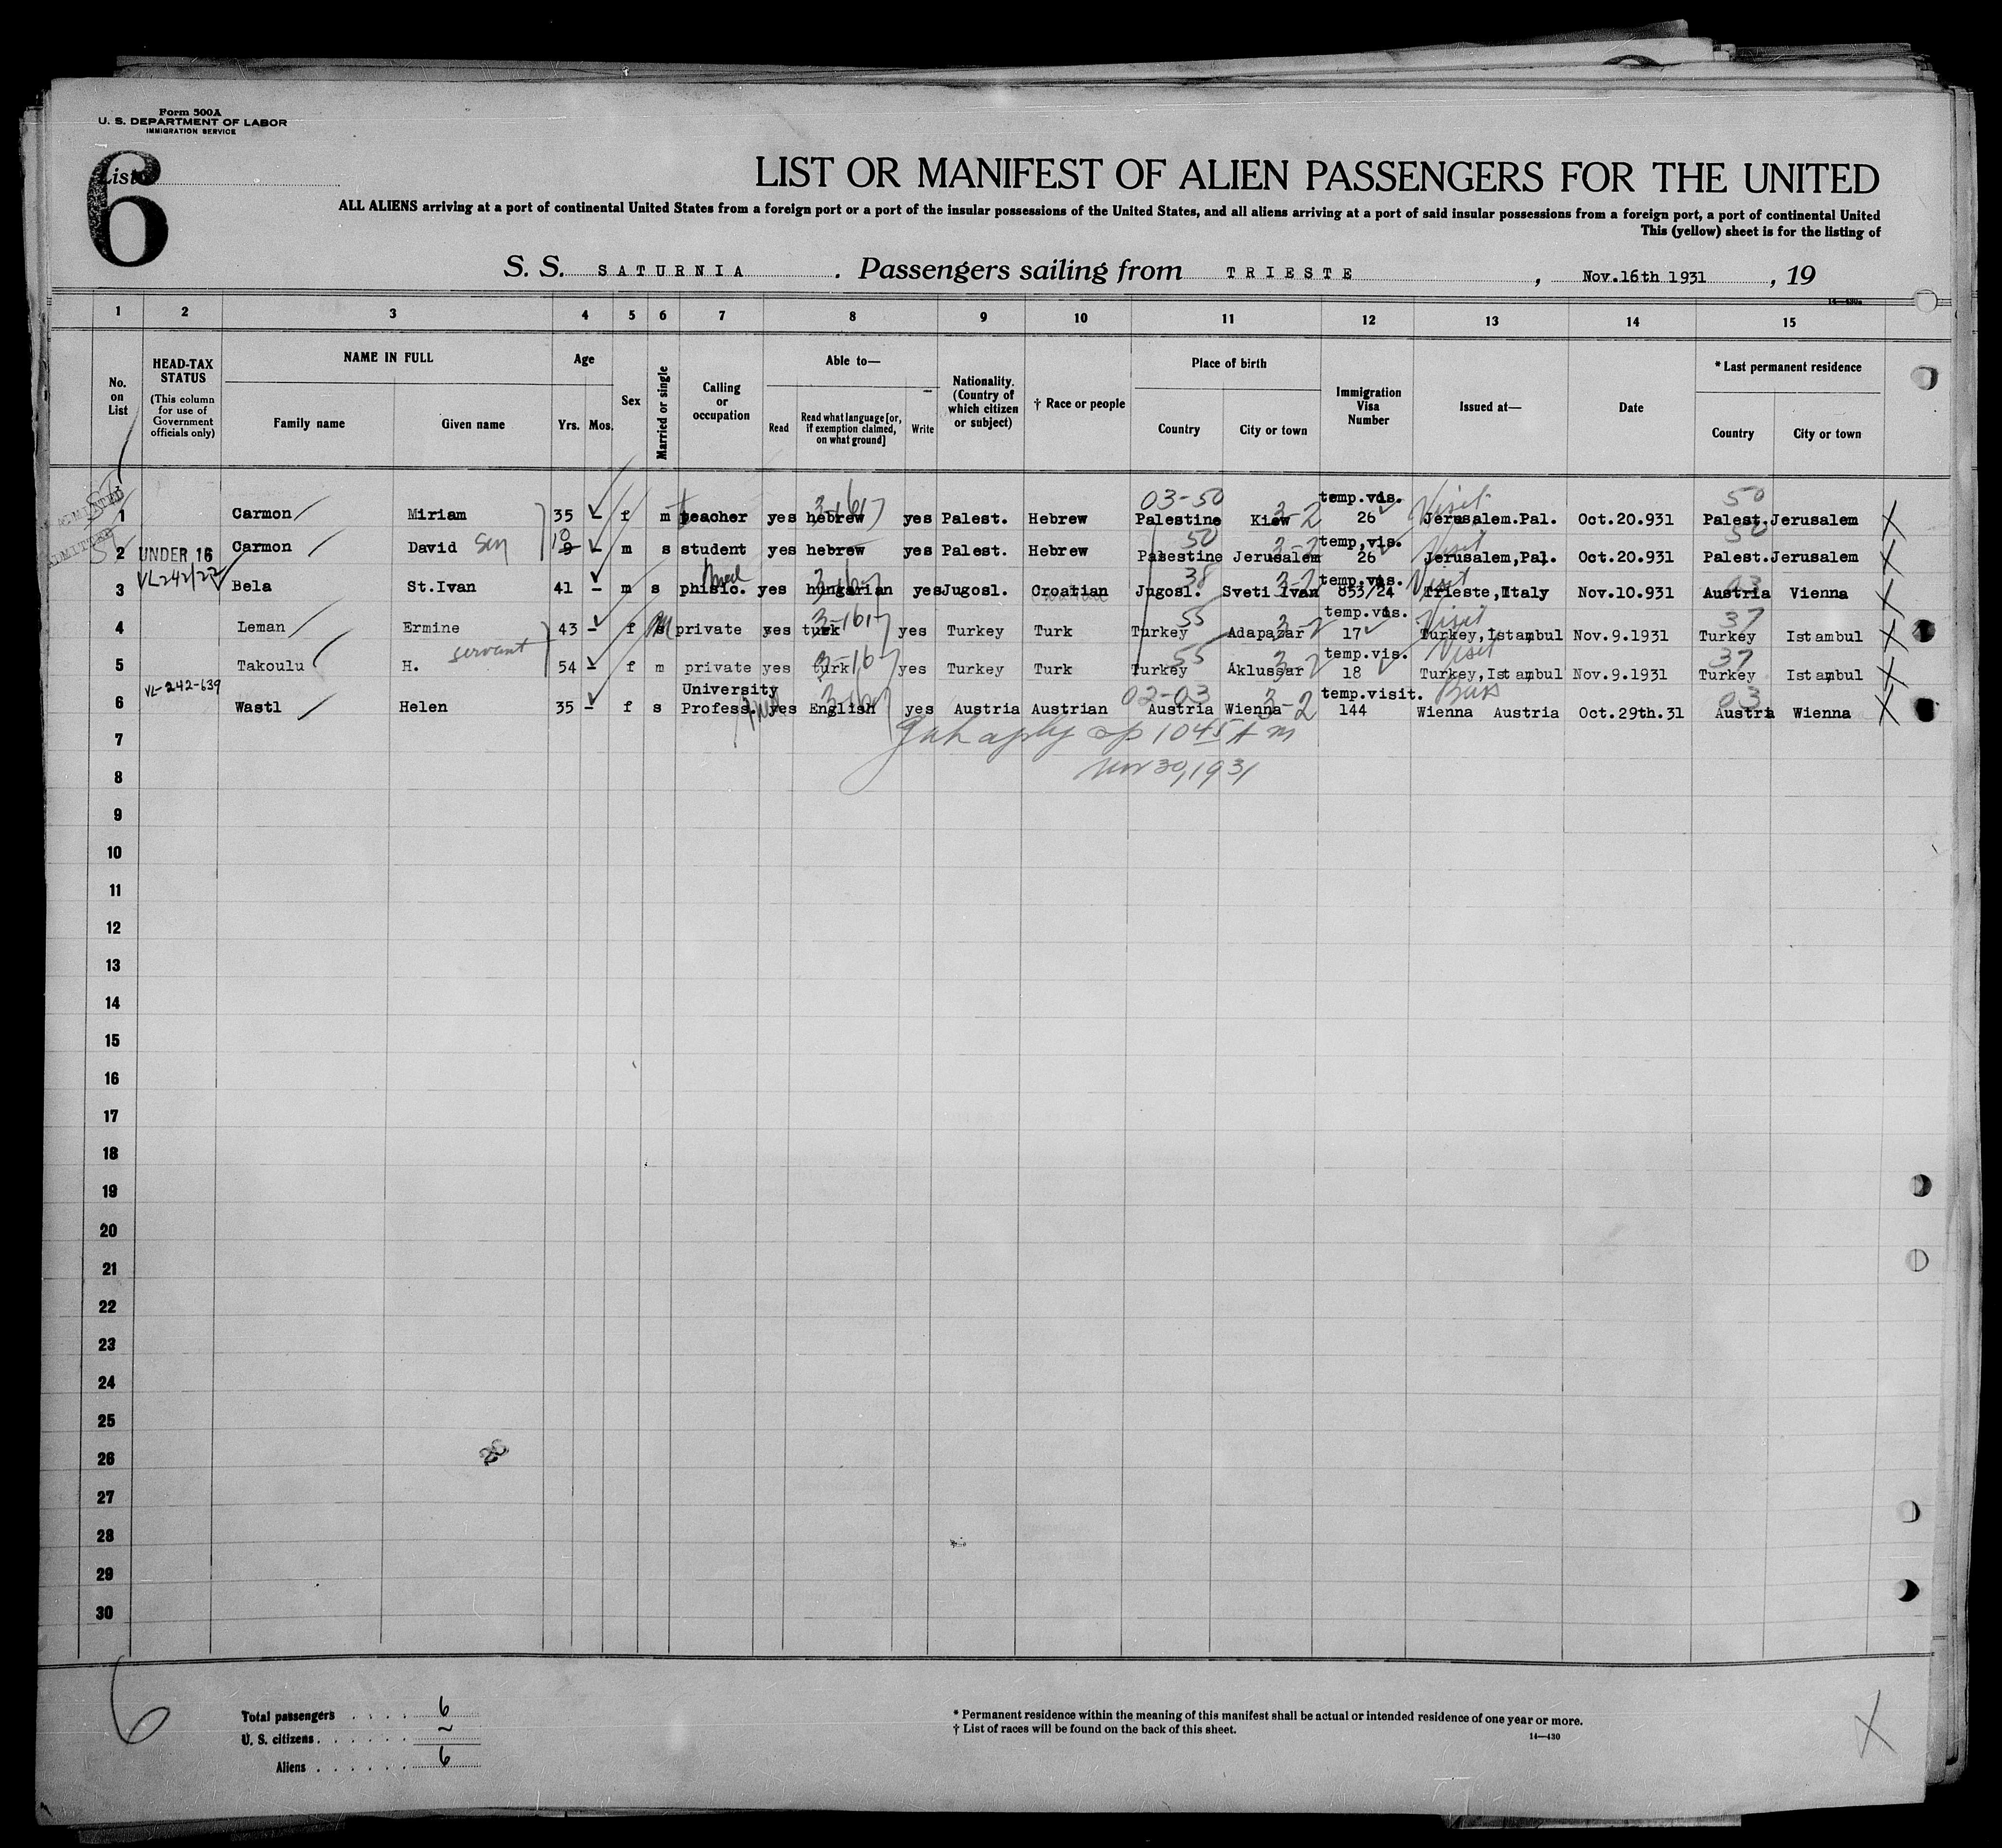 Form 500A
U. S. DEPARTMENT OF LABOR
IMMIGRATION SERVICE
6
List
LIST OR MANIFEST OF ALIEN PASSENGERS FOR THE UNITED
ALL ALIENS arriving at a port of continental United States from a foreign port or a port of the insular possessions of the United States, and all aliens arriving at a port of said insular possessions from a foreign port, a port of continental United
This (yellow) sheet is for the listing of
S. S. SATURNIA . Passengers sailing from TRIESTE , Nov.16th 1931 , 19
14—430a
1 2 3 4 5 6 7 8 9 10 11 12 13 14 15
No. on List
HEAD-TAX STATUS
(This column for use of Government officials only)
NAME IN FULL
Family name Given name
Age
Yrs. Mos.
Sex
Married or single
Calling or occupation
Able to—
Read Read what language [or, if exemption claimed, on what ground] Write
Nationality. (Country of which citizen or subject)
† Race or people
Place of birth
Country City or town
Immigration Visa Number
Issued at—
Date
* Last permanent residence
Country City or town
03-50 temp.vis. Visit 50
1 Carmon Miriam 35 – f m teacher yes hebrew yes Palest. Hebrew Palestine Kiew 3-2 26 Jerusalem.Pal. Oct.20.931 Palest. Jerusalem
ADMITTED
50 temp,vis. Visit 50
2 UNDER 16 Carmon David son 10 9 – m s student yes hebrew yes Palest. Hebrew Palestine Jerusalem 3-2 26 Jerusalem,Pal. Oct.20.931 Palest. Jerusalem
VL242/22 38 3-2 temp.vis. Visit 03
3 Bela St.Ivan 41 – m s phisic. yes hungarian yes Jugosl. Croatian Jugosl. Sveti Ivan 853/24 Trieste,Italy Nov.10.931 Austria Vienna
55 temp.vis. Visit 37
4 Leman Ermine 43 – f s m private yes turk yes Turkey Turk Turkey Adapazar 3-2 17 Turkey,Istambul Nov.9.1931 Turkey Istambul
servant 55 temp.vis. Visit 37
5 Takoulu H. 54 – f m private yes turk yes Turkey Turk Turkey Aklussar 3-2 18 Turkey,Istambul Nov.9.1931 Turkey Istambul
VL-242-639 University 02-03 temp.visit. Bus 03
6 Wastl Helen 35 – f s Profess. yes English yes Austria Austrian Austria Wienna 3-2 144 Wienna Austria Oct.29th.31 Austria Wienna
7
1045 A m
8 Nov 30, 1931
9
10
11
12
13
14
15
16
17
18
19
20
21
22
23
24
25
26
27
28
29
30
6
Total passengers . . . . 6
U. S. citizens . . . . . . ~
Aliens . . . . . . 6
* Permanent residence within the meaning of this manifest shall be actual or intended residence of one year or more.
† List of races will be found on the back of this sheet.
14—430
X